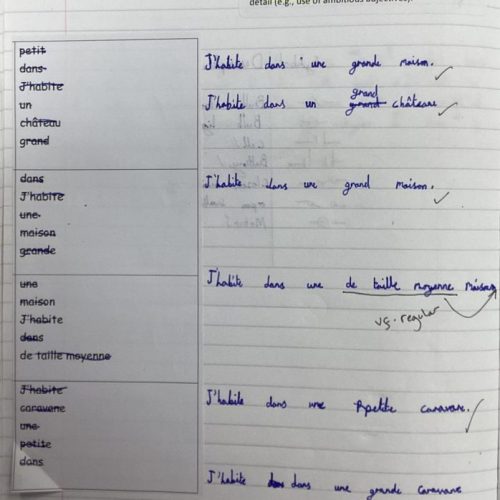 detail (e.g., use of ambitious adjectives).
petit
dans
J'habite
un
château
grand
J'habite dans une grande maison.
grand
J'habite dans un grand châteaux
dans
J'habite
une
maison
grande
J'habite dans une grand maison.
une
maison
J'habite
dans
de taille moyenne
J'habite dans une de taille moyenne maison
vg. regular
J'habite
caravane
une
petite
dans
J'habite dans une petite caravane.
J'habite dans une grande caravane